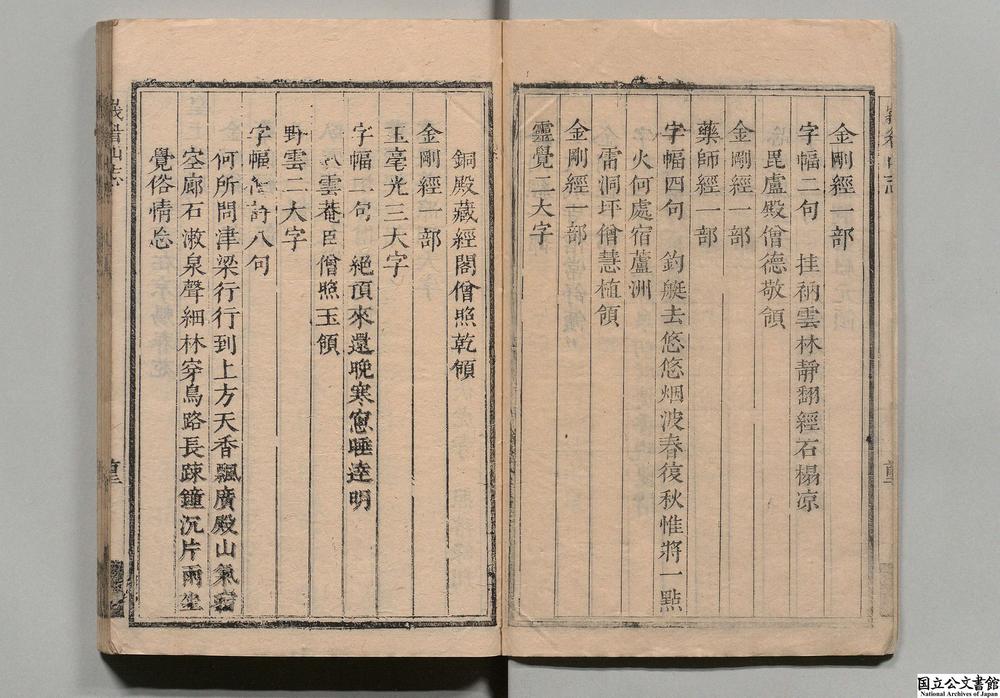 金剛經一部
字幅二句　挂衲雲林靜翻經石榻凉
毘盧殿僧德敬領
金剛經一部
藥師經一部
字幅四句　釣艇去悠悠烟波春復秋惟將一點
火何處宿蘆洲
雷洞坪僧慧植領
金剛經一部
靈覺二大字
銅殿藏經閣僧照乾領
金剛經一部
玉毫光三大字
字幅二句　絕頂來還晚寒窻睡達明
臥雲菴臣僧照玉領
野雲二大字
字幅 詩八句
何所問津梁行行到上方天香飄廣殿山氣
空廊石潄泉聲細林穿鳥路長疎鐘沉片雨坐
覺俗情忘
峩眉山志
国立公文書館
National Archives of Japan